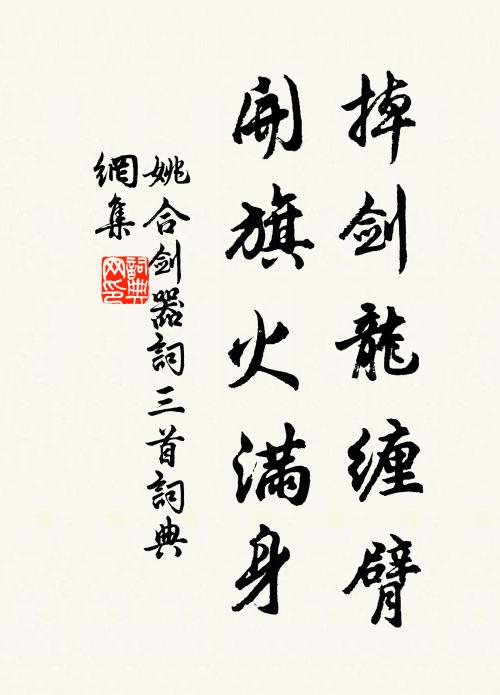 掉剑龍缠臂
開旗火满身
姚合剑器詞三首詞典
網集
詞典网印